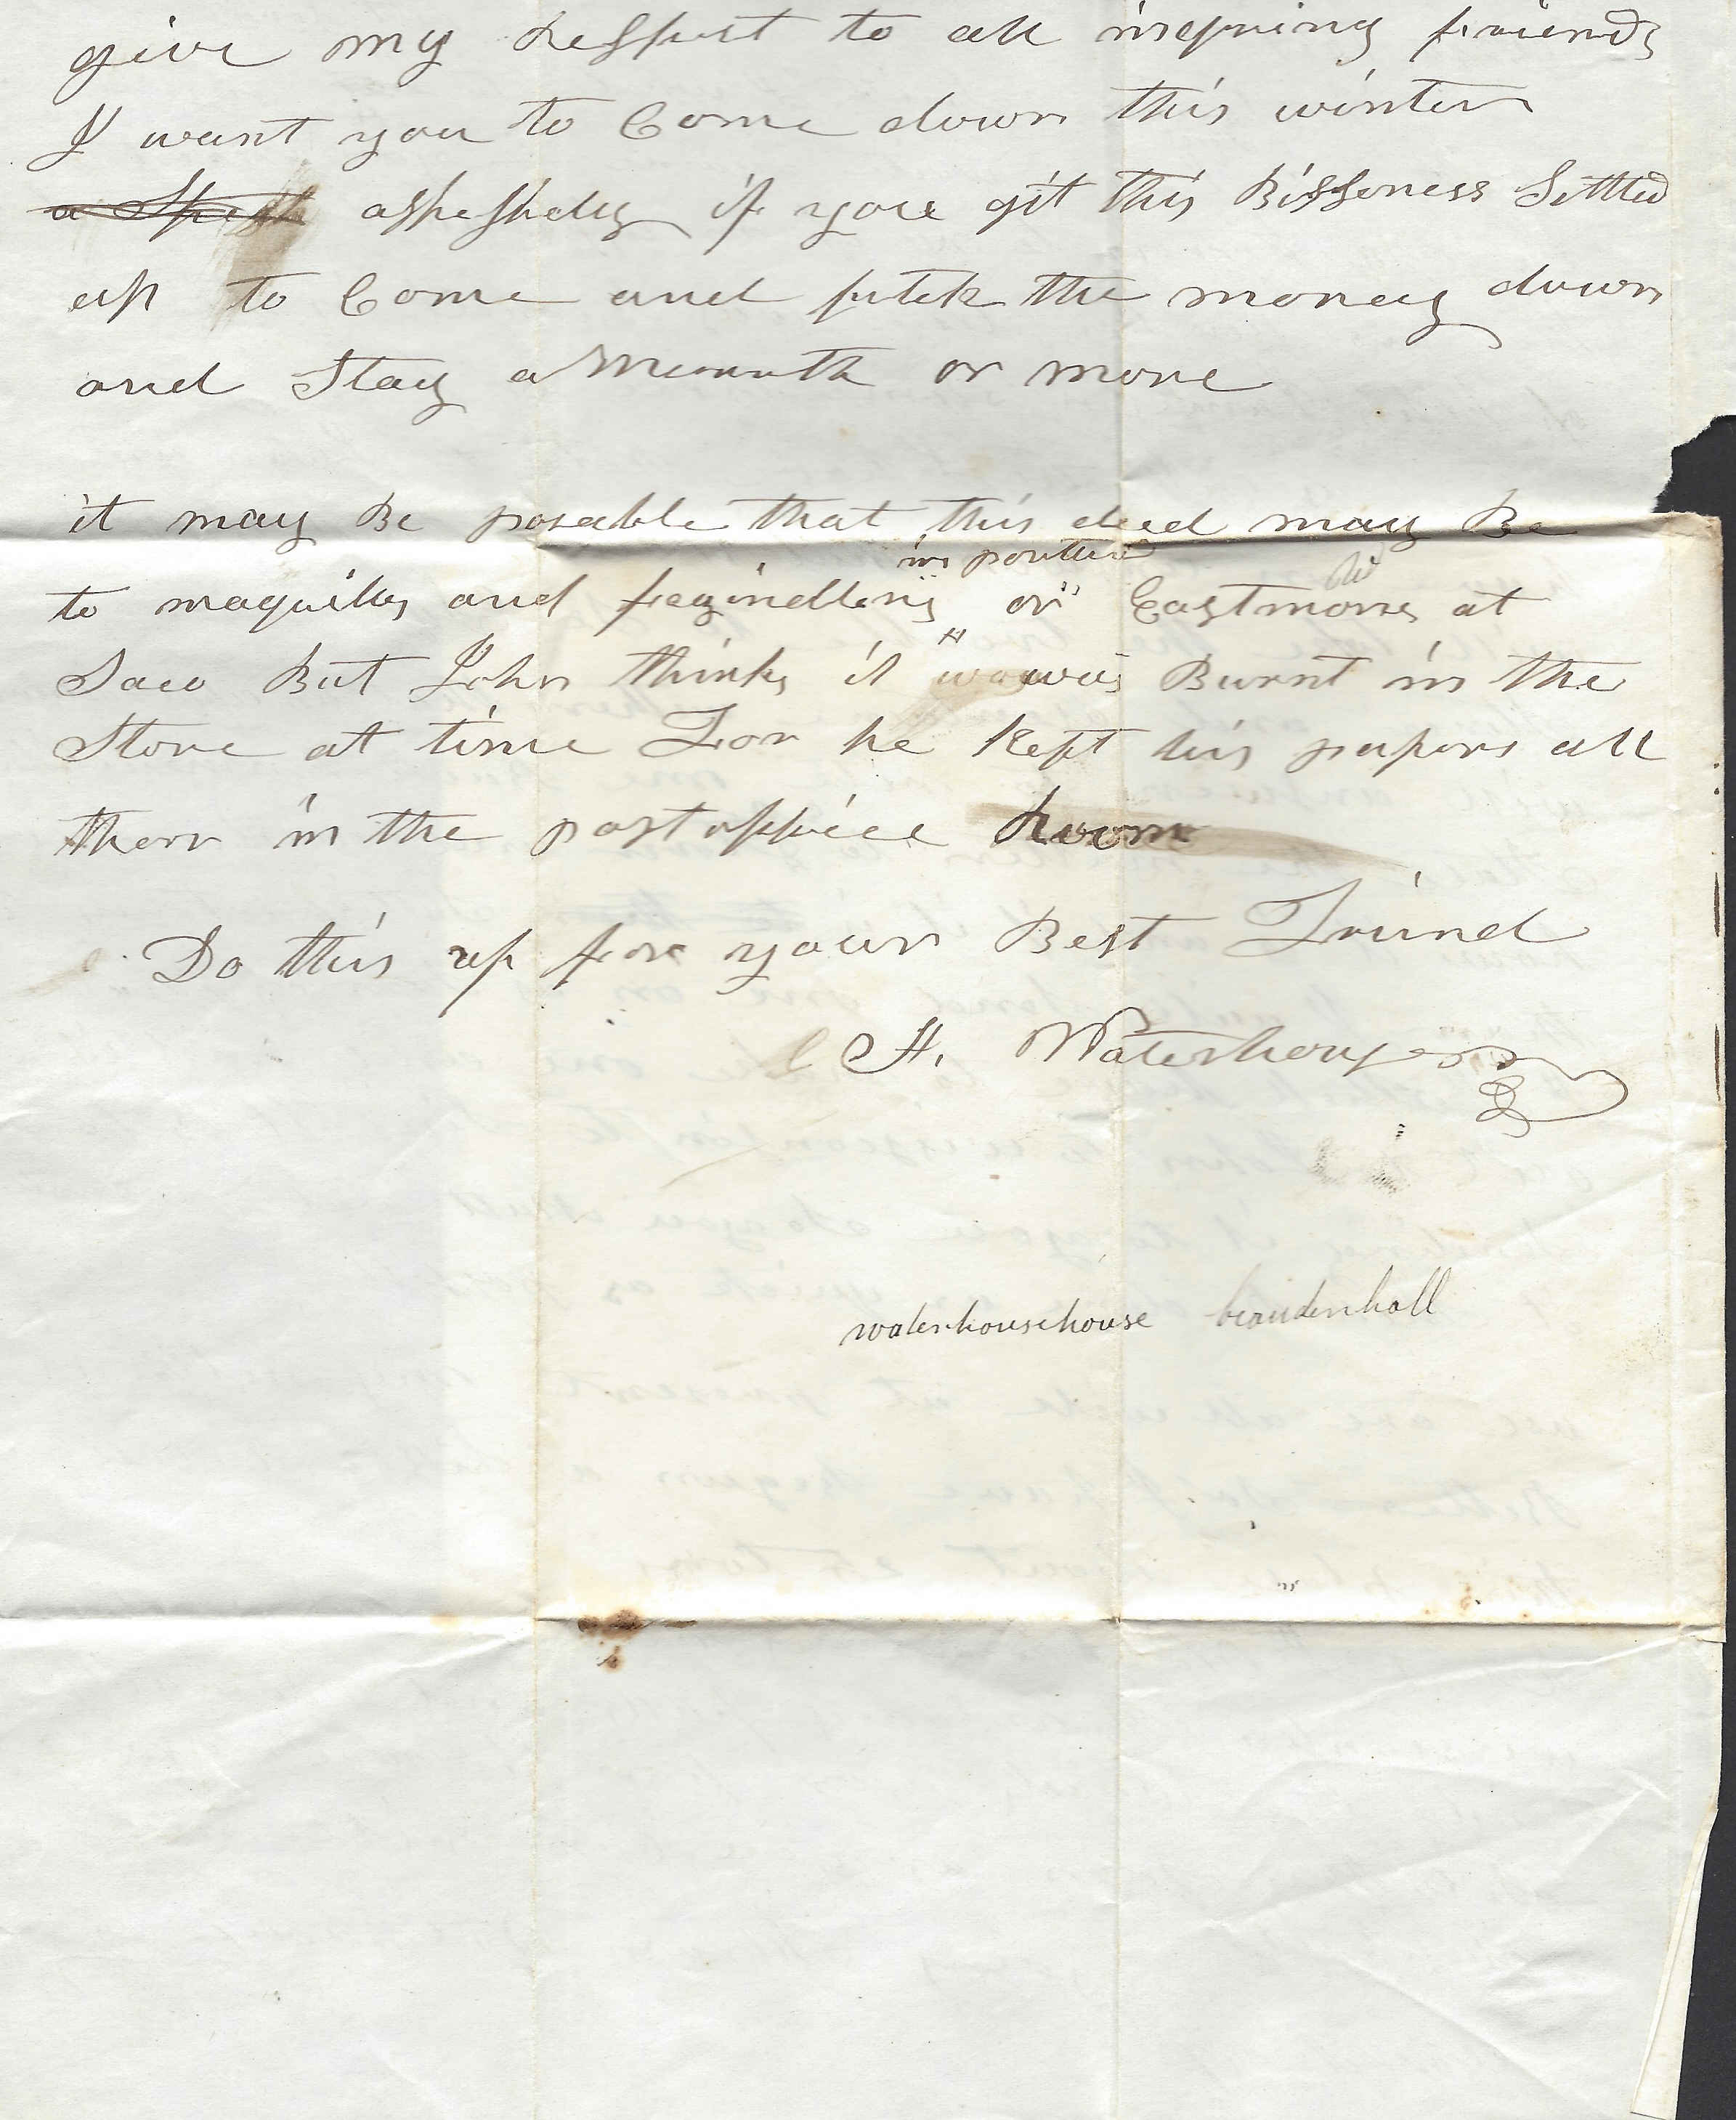 give my Respect to all inqriring friends
I want you to Come down this winter
a Spesh aspeshely if you git this Bisseness Settled
up to Come and fetch the money down
and Stay a Mounth or more
it may Be posable that this deed may Be
in
to and or Eastmons at
Saco But John thinks it was Burnt in the
Store at time For he Kept his papers all
thear in the postoffice Room
Do this up for your Best Friend
H. Waterhouse
waterhousehouse